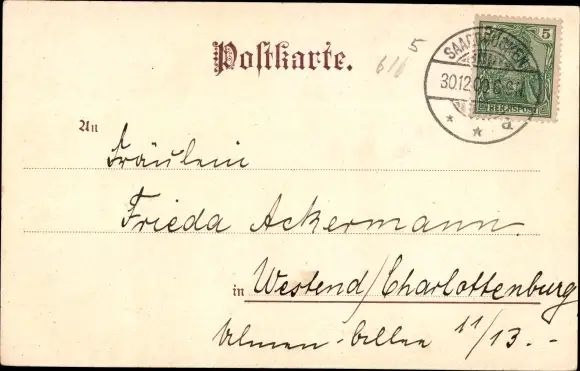 Postkarte.
616 5
SAARBRÜCKEN
30.12.00
a
5
REICHSPOST
An
Fräulein
Frieda Ackermann.
in Westend/Charlottenburg
Ulmen-Allee 11/13.-